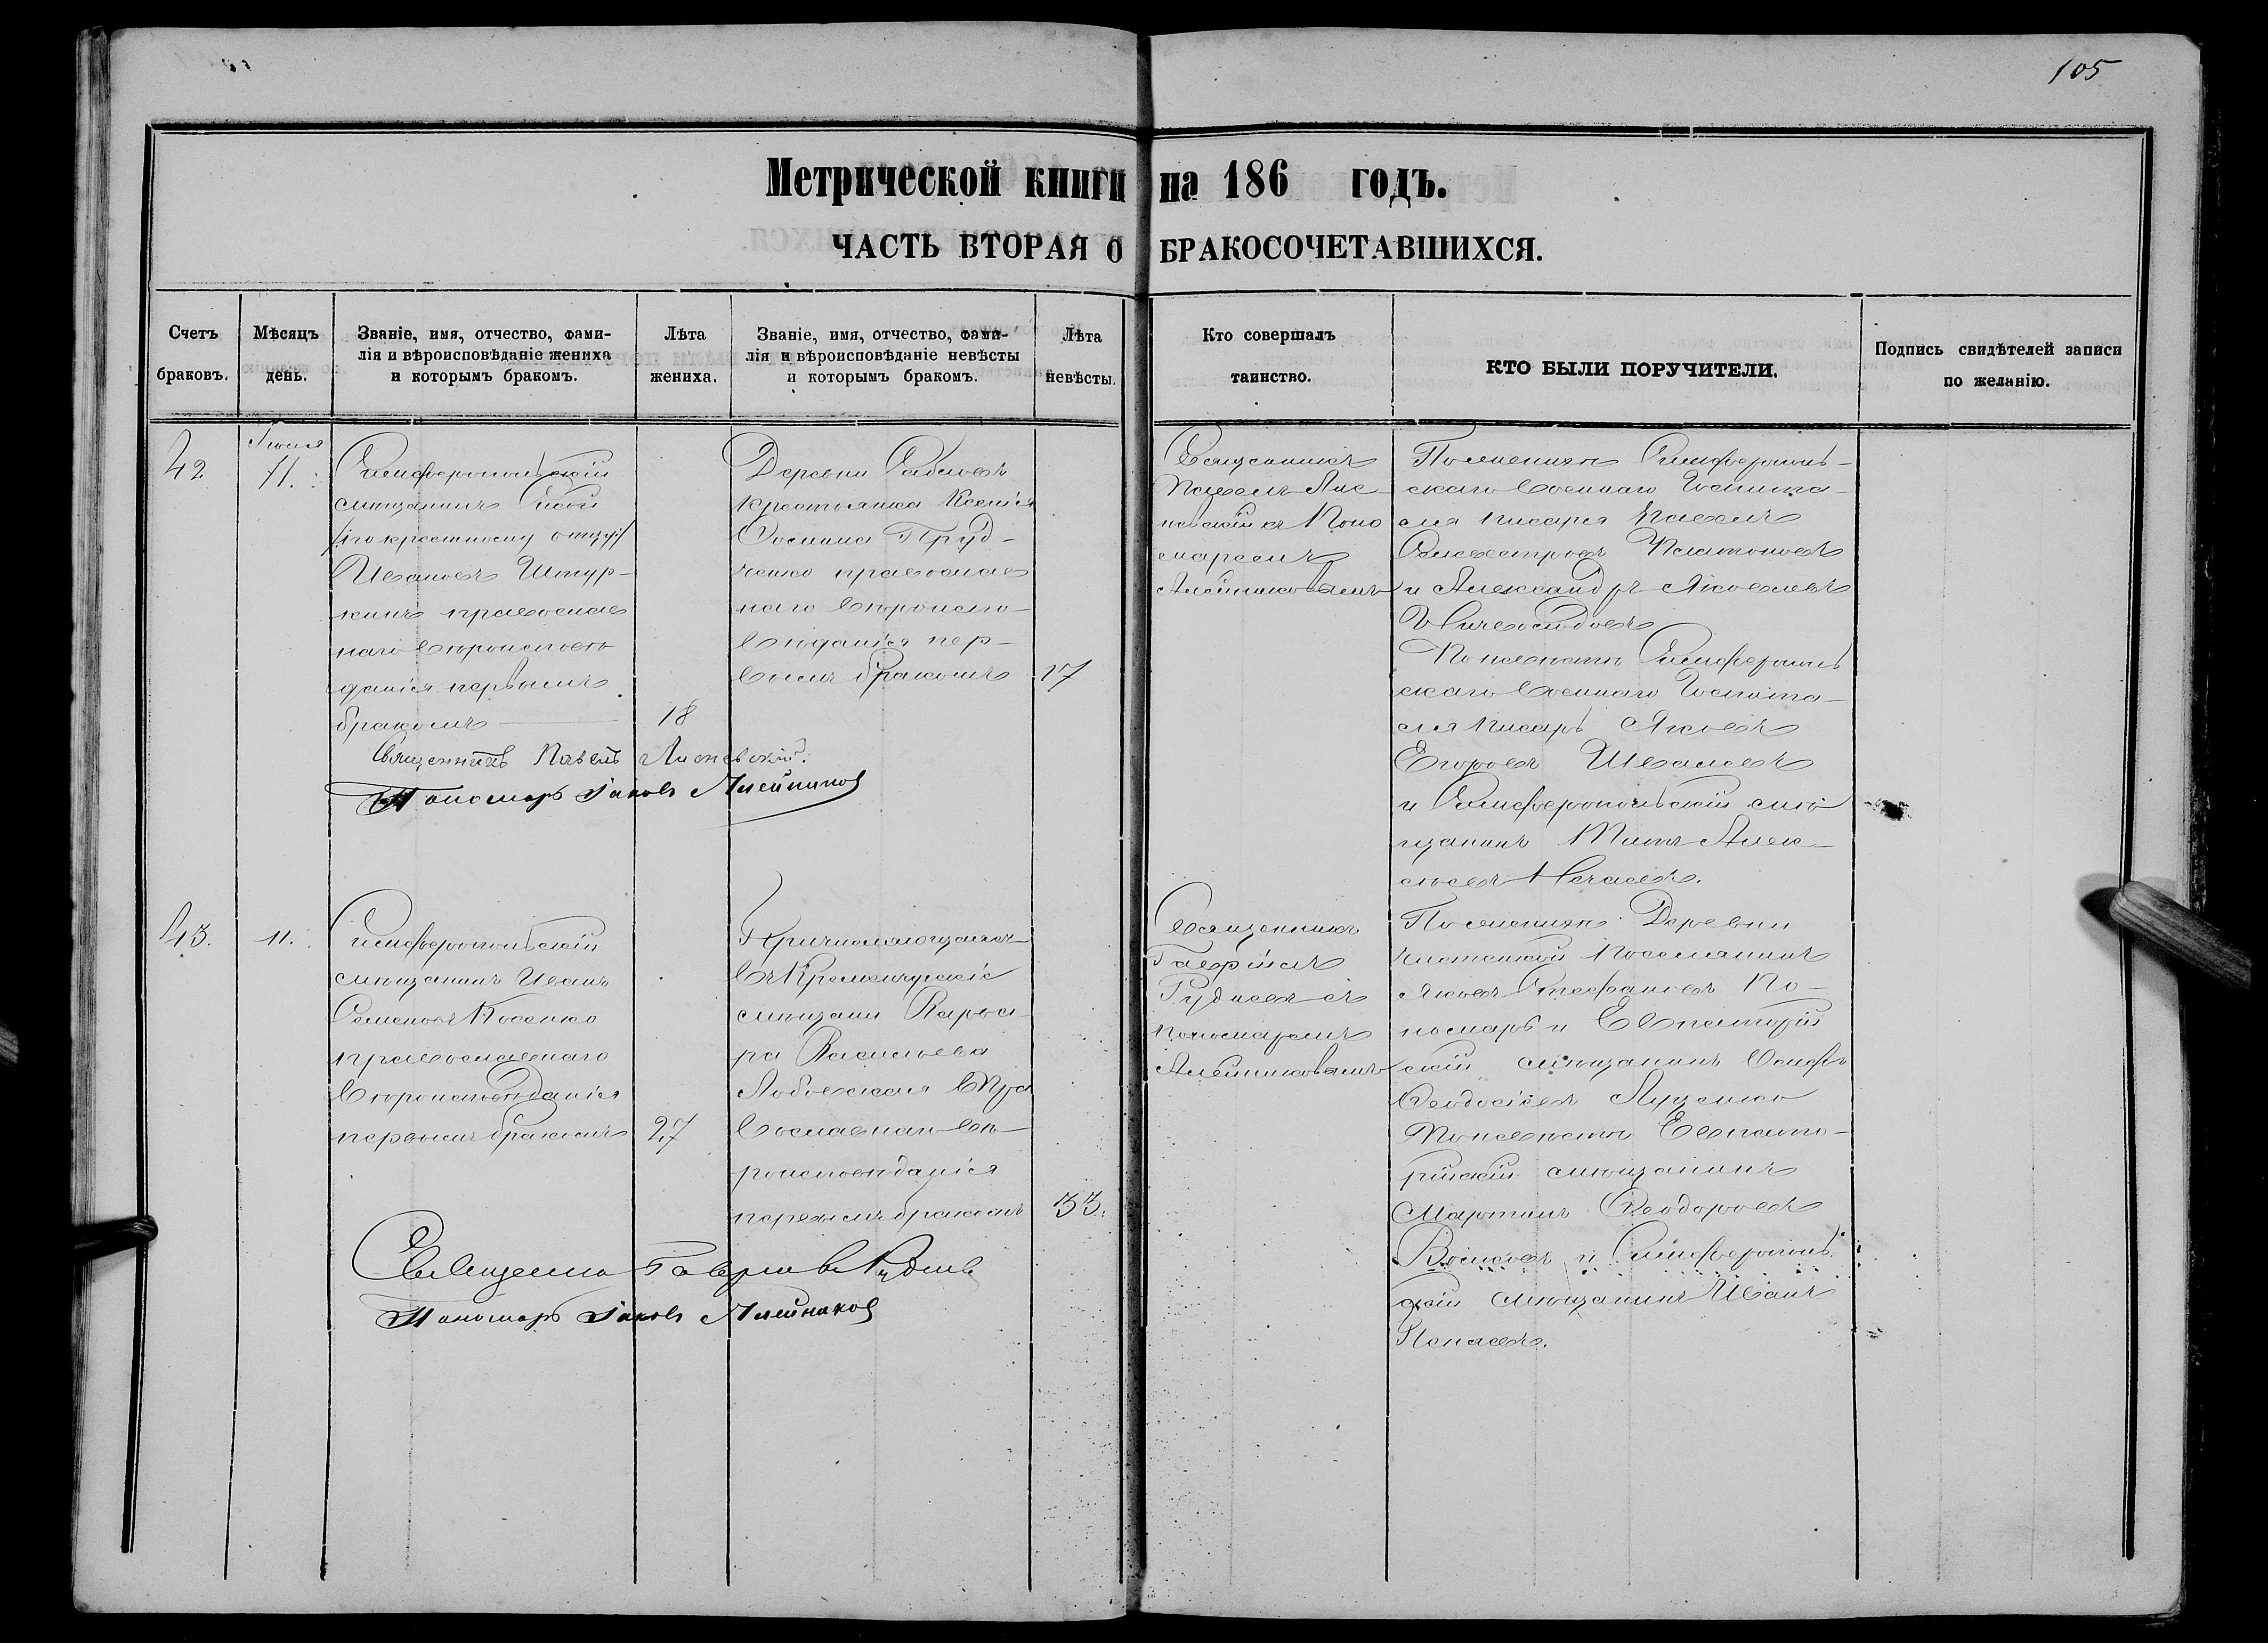 105
Метрической книги на 186 годъ.
ЧАСТЬ ВТОРАЯ О БРАКОСОЧЕТАВШИХСЯ.
Счетъ
браковъ.
Мѣсяцъ
день.
Званіе, имя, отчество, фами-
лія и вѣроисповѣданіе жениха
и которымъ бракомъ.
Лѣта
жениха.
Званіе, имя, отчество, фами-
лія и вѣроисповѣданіе невѣсты
и которымъ бракомъ.
Лѣта
невѣсты.
Кто совершалъ
таинство.
КТО БЫЛИ ПОРУЧИТЕЛИ.
Подпись свидѣтелей записи
по желанію.
42
11.
Симферопольскій
мѣщанинъ
/:по крестному отцу:/
Ивановъ
православ
наго вѣроисповѣ
данія первымъ
бракомъ
18
Деревни
крестьянка Ксенія
Пруд-
ченко православ
наго вѣроиспо-
вѣданія пер-
вымъ бракомъ
17
Священникъ
Павелъ
съ Поно
маремъ
Алейниковымъ
По женихѣ Симферополь-
скаго военнаго Госпита-
ля писаря Павелъ
Селивестровъ Платоновъ
и Александръ Яковлевъ
По невѣстѣ Симферополь
скаго военнаго Госпита-
ля писарь Яковъ
Егоровъ
и Симферопольскій мѣ
щанинъ Титъ Алек-
сѣевъ Нечаевъ.
Священникъ Павелъ
Пономарь Іаковъ Алейников
43.
11.
Симферопольскій
мѣщанинъ Иванъ
Семеновъ Косенко
православнаго
вѣроисповѣданія
первымъ бракомъ
27
Причисляющаяся
въ Кременчугскіе
мѣщани
ра Васильева
Пра
вославнаго вѣ-
роисповѣданія
первымъ бракомъ
33.
Священникъ
Гавріилъ
Рудневъ съ
пономаремъ
Алейниковымъ
По женихѣ Деревни
поселянинъ
Яковъ Стефановъ По-
номарь и Евпаторій
скій мѣщанинъ Осифъ
Феодосіевъ Луценко
По невѣстѣ Евпато-
рійскій мѣщанинъ
Мартинъ Феодоровъ
и Симферополь
скій мѣщанинъ Иванъ
Священно Гавріилъ Рудневъ
Пономарь Іаковъ Алейников